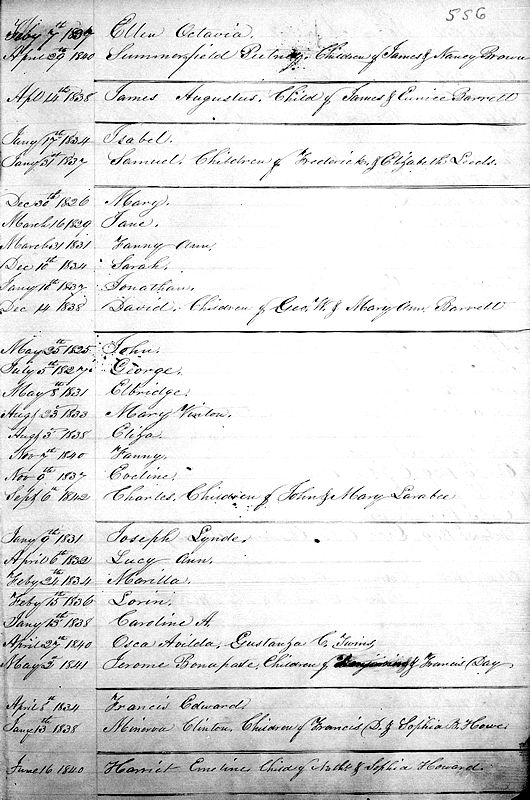 556
Feby 7th 1837 Ellen Octavia.
April 29 1840 Summerfield Children of James & Nancy Brown
Apl 14th 1838 James Augustus, Child of James & Eunice Barrett
Jany 17th 1834 Isabel.
Jany 31st 1837 Samuel. Children of Frederick & Elizabeth Leeds.
Dec 30th 1826 Mary.
March 16 1829 Jane.
March 31 1831 Fanny Ann.
Dec 10th 1834 Sarah.
Jany 10th 1837 Jonathan.
Dec 14 1838 David. Children of Geo. W. & Mary Ann Barrett
May 25th 1825 John.
July 5th 1827 George.
May 8th 1831 Elbridge.
Augt 23 1833 Mary Vinton.
Augt 3d 1838 Eliza.
Nov 7th 1840 Fanny.
Nov 9th 1837 Eveline.
Sept 6th 1842 Charles. Children of John & Mary Larabee
Jany 9th 1831 Joseph Lynde.
April 6th 1832 Lucy Ann.
Feby 24th 1834 Marilla.
Feby 15th 1836 Lorin.
Jany 15th 1838 Caroline A
April 27th 1840 Osca Avilda, Gustanza C. Twins
May 3 1841 Jerome Bonapate, Children of & Francis Day
April 8th 1834 Francis Edward
Jany 13th 1838 Minerva Clinton, Children of Francis D. & Sophia B. Howe
June 16 1840 Harriet Emeline Child of Nathl & Sophia Howard.